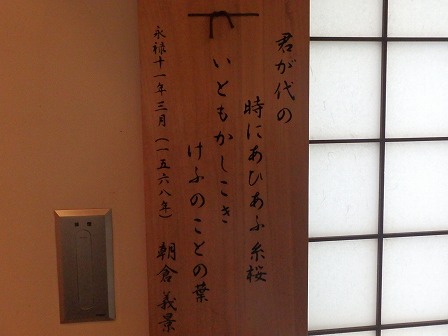 君が代の
時にあひあふ糸桜
いともかしこき
けふのことの葉
永禄十一年三月（一五六八年） 朝倉義景